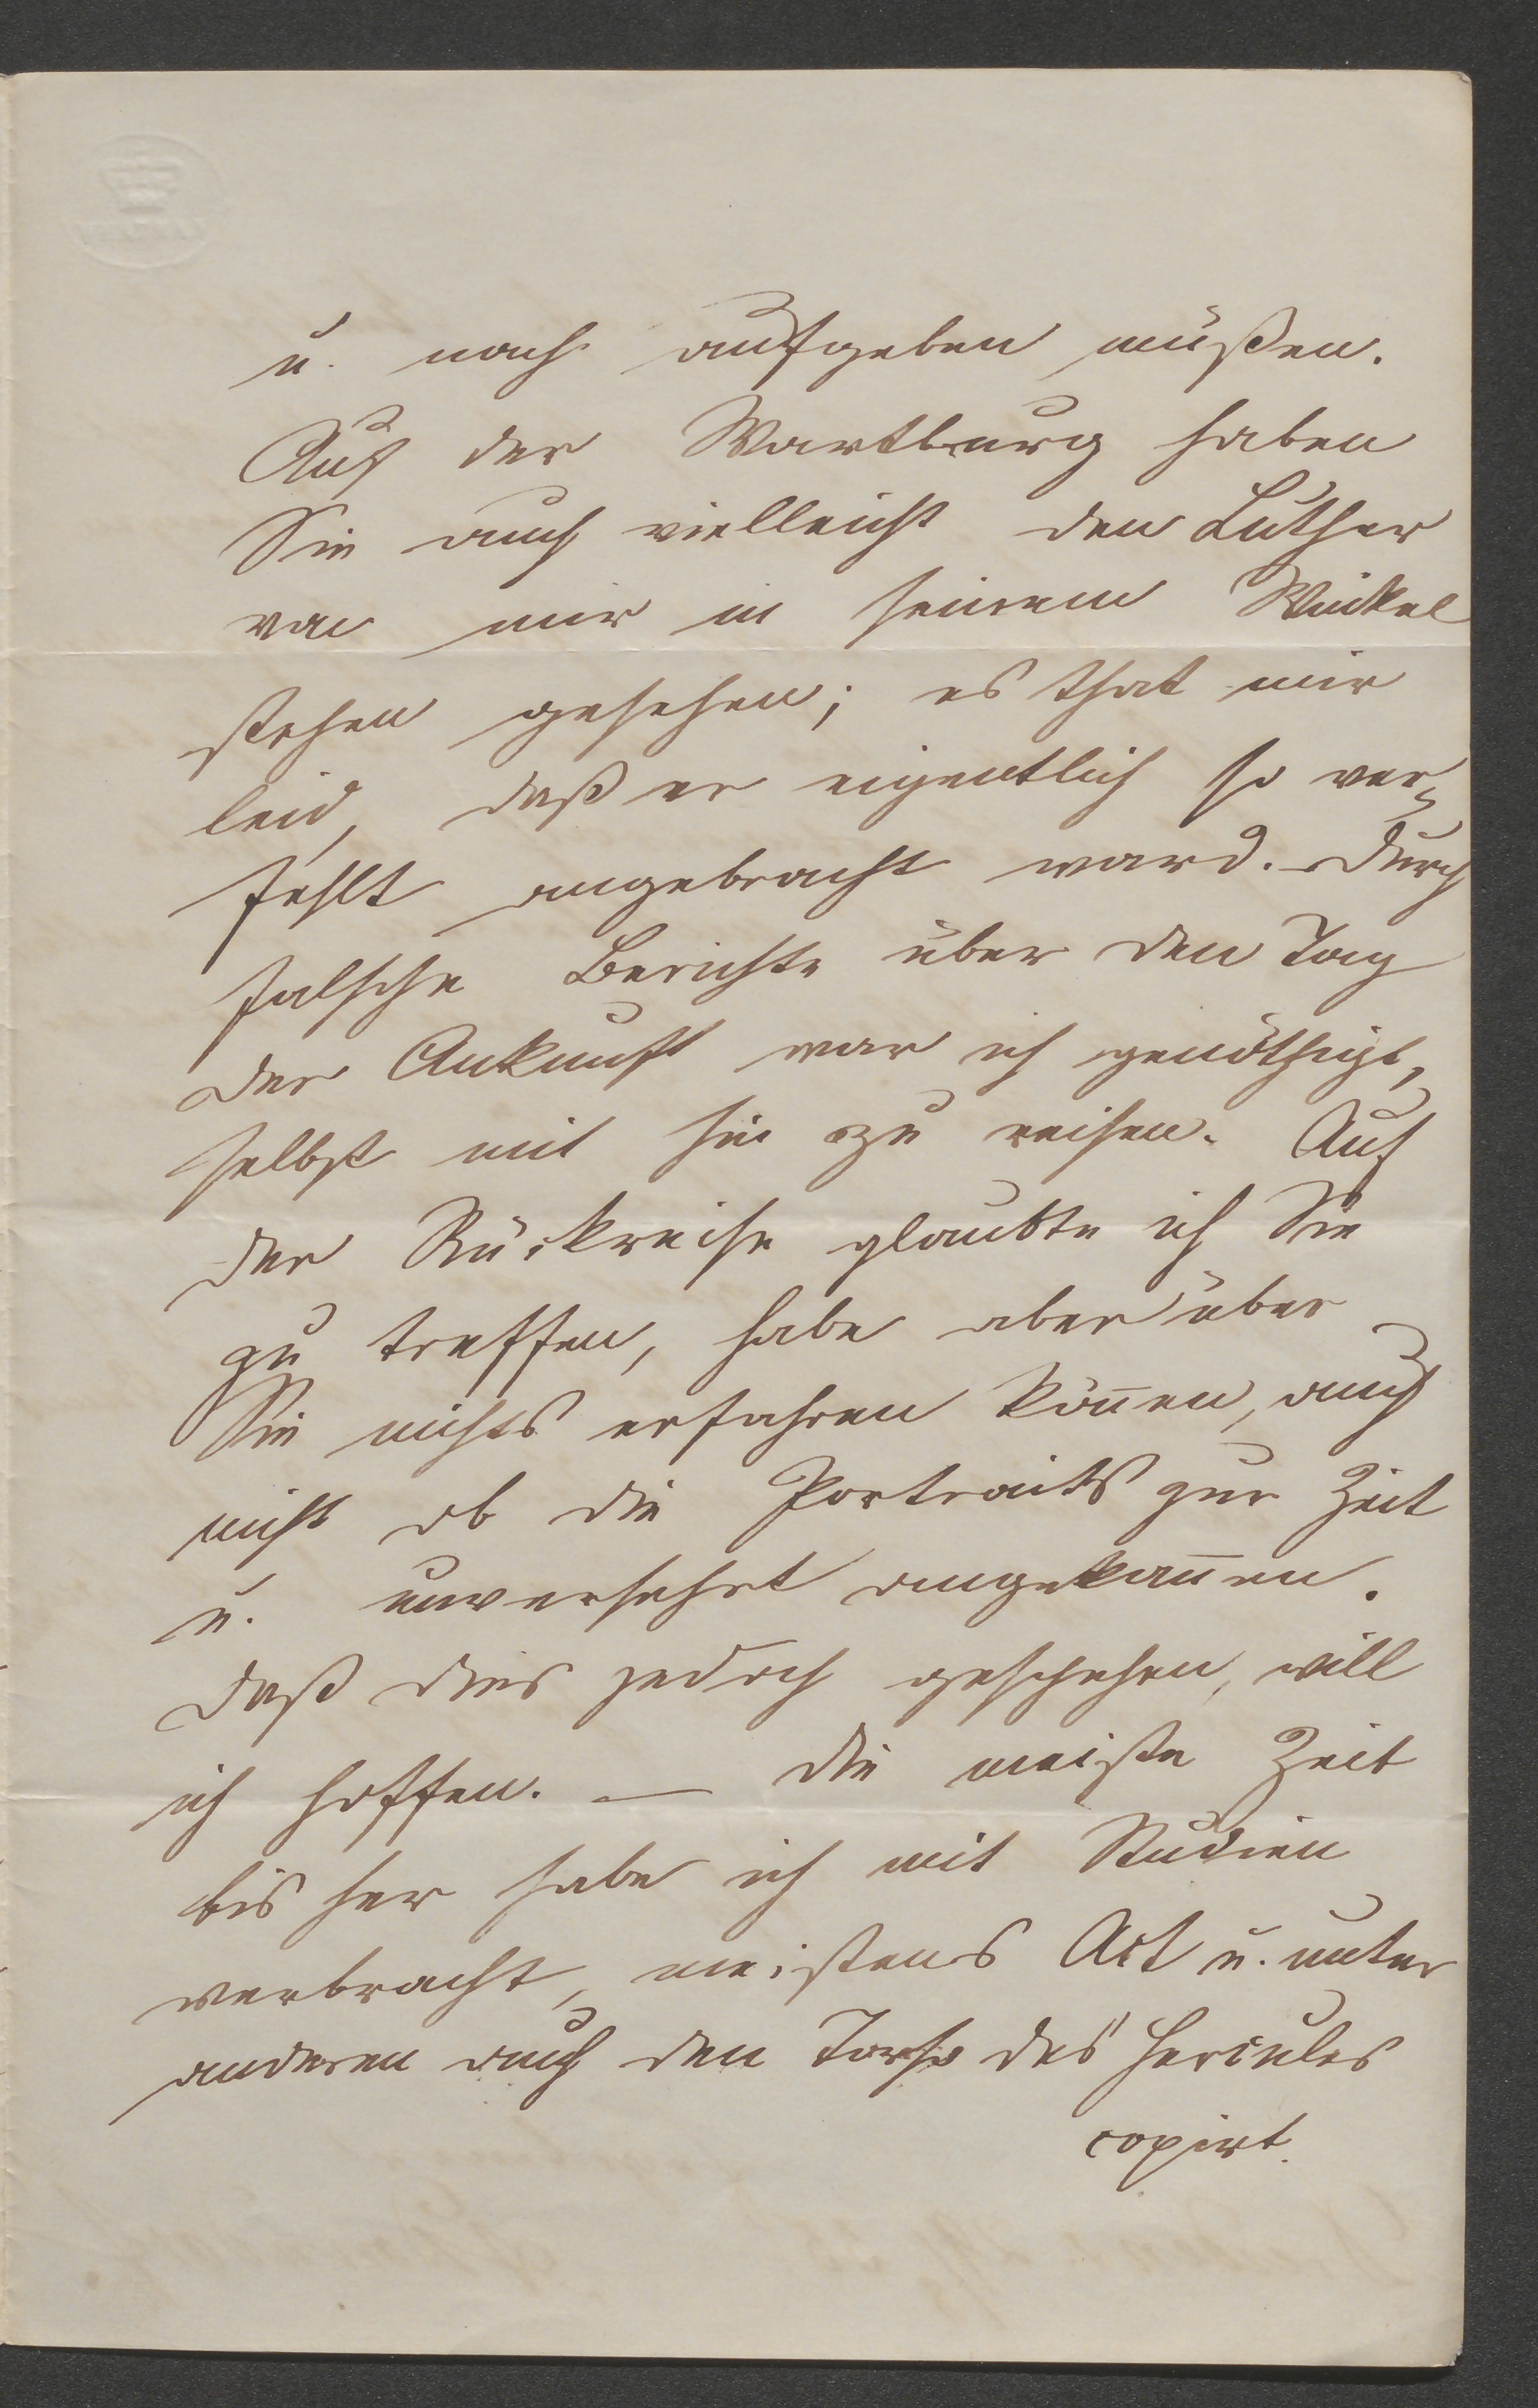 u. noch aufgeben müßen.
Auf der Wartburg haben
Sie auch vielleicht den Luther
von mir in seinem Winkel
stehen gesehen; es that mir
leid, daß er eigentlich so ver-
fehlt angebracht ward. Durch
falsche Berichte über den Tag
der Ankunft war ich genöthigt,
selbst mit hin zu reisen. Auf
der Rückreise glaubte ich Sie
zu treffen, habe aber über
Sie nichts erfahren können, auch
nicht ob die Portraits zur Zeit
u. unversehrt angekom̄en.
Daß dies jedoch geschehen, will
ich hoffen. — Die meiste Zeit
bis her habe ich mit Studien
verbracht, meistens Act u. unter
anderen auch den Torso des Hercules
copirt.